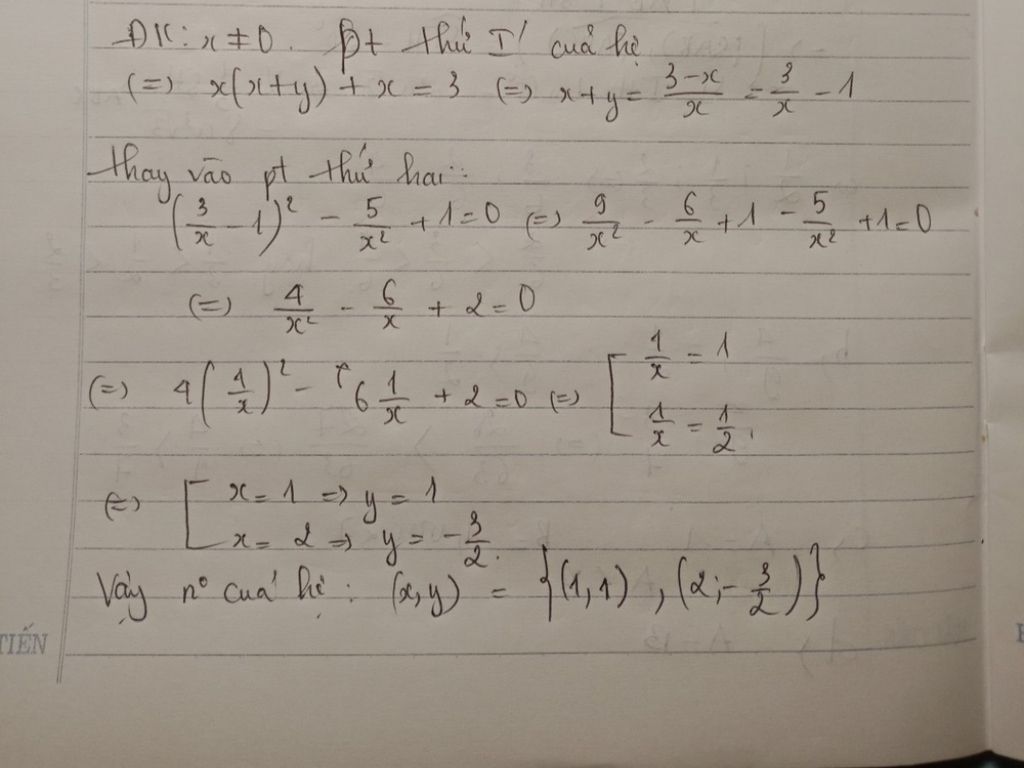 ĐK: x ≠ 0. pt thứ I của hệ
(=) x(x+y) + x = 3 (=) x+y = \frac{3-x}{x} = \frac{3}{x} - 1
thay vào pt thứ hai:
(\frac{3}{x} - 1)^2 - \frac{5}{x^2} + 1 = 0 (=) \frac{9}{x^2} - \frac{6}{x} + 1 - \frac{5}{x^2} + 1 = 0
(=) \frac{4}{x^2} - \frac{6}{x} + 2 = 0
(=) 4(\frac{1}{x})^2 - 6\frac{1}{x} + 2 = 0 (=) [ \frac{1}{x} = 1
\frac{1}{x} = \frac{1}{2}.
(=) [ x = 1 => y = 1
x = 2 => y = -\frac{3}{2}.
Vậy n° của hệ: (x,y) = {(1,1), (2;-\frac{3}{2})}
TIẾN